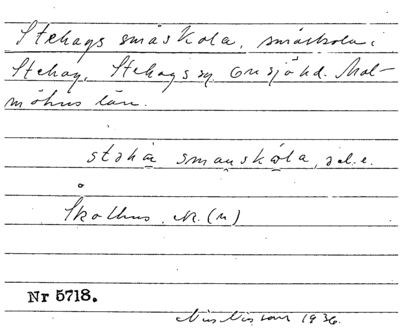 Stehags småskola, småskola i
Stehag, Stehags sn, Onsjö hd. Mal-
möhus län.
stahä smauskola, ad. e.
Skolhus, N. (n)
Nr 5718.
1936.